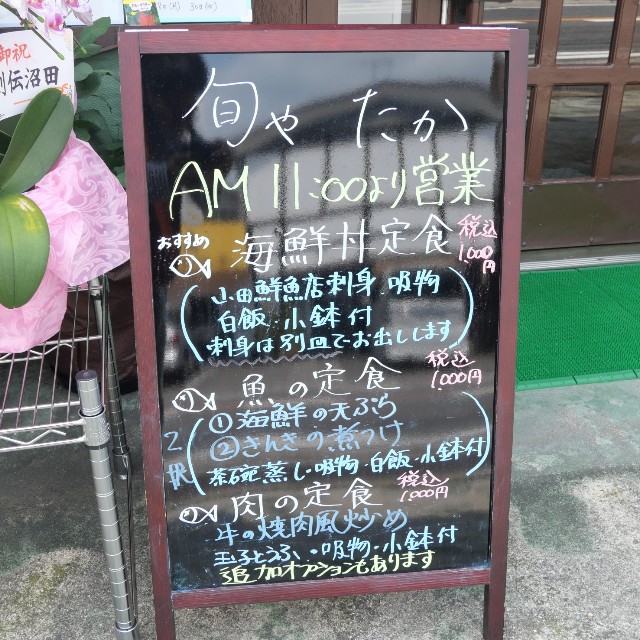 御祝
旬や たか
AM 11:00より営業
おすすめ
海鮮丼定食 税込 1,000円
(山田鮮魚店刺身 吸物
白飯・小鉢付
刺身は別皿でお出しします)
魚の定食 税込 1,000円
2択
(①海鮮の天ぷら
②きんきの煮つけ
茶碗蒸し・吸物・白飯・小鉢付)
肉の定食 税込 1,000円
牛の焼肉風炒め
玉子とうふ・吸物・小鉢付
追加オプションもあります